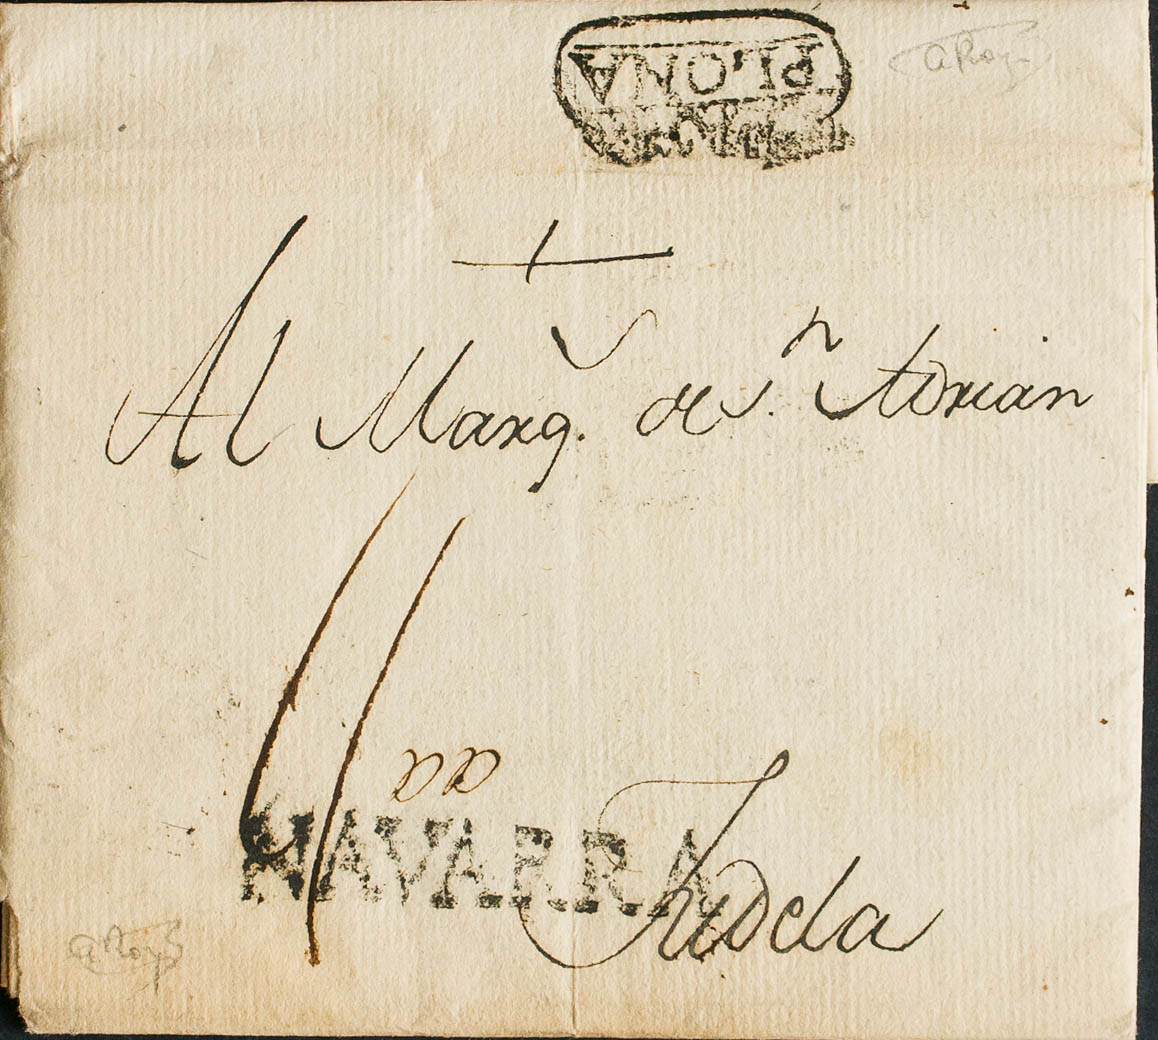 PLONA
aRoy
Al Marq. de S.n Adrian
NAVARRA
Tudela
aRoy